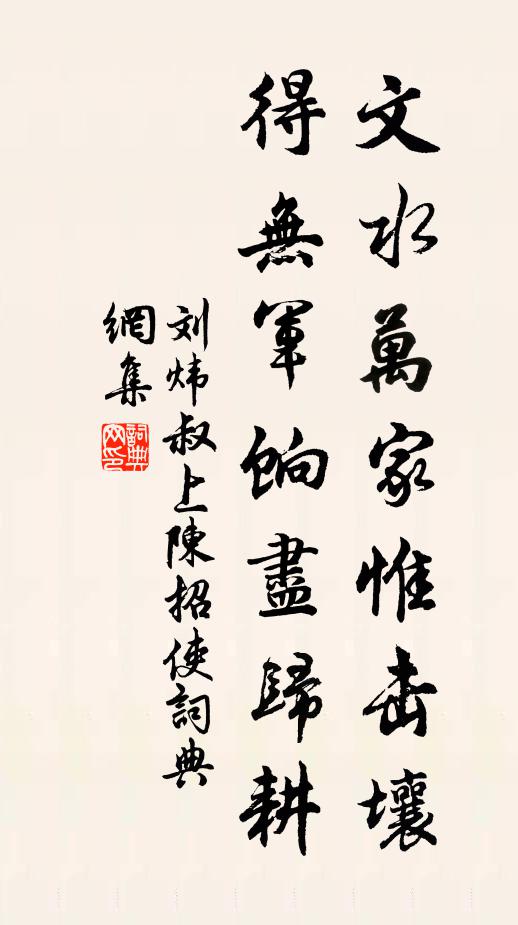 文水萬家惟击壤
得無軍餉盡歸耕
刘炜叔上陳招使詞典
網集
詞典
网印